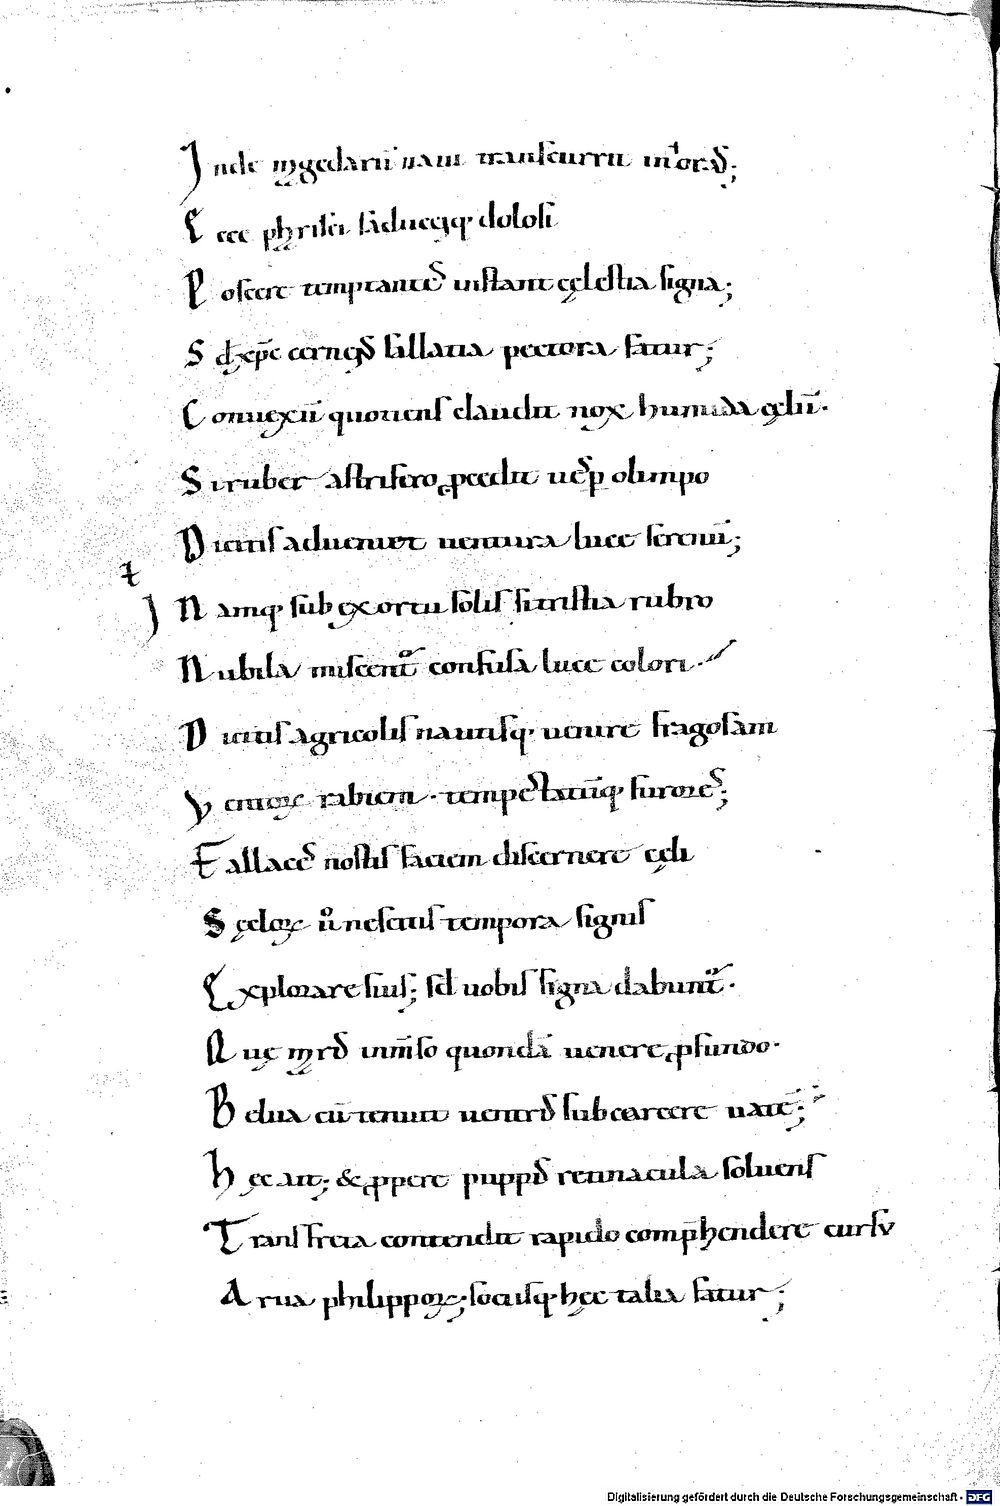 Inde mgedarū naui transcurrit in oras;
Ecce pharisęi saducęiq· dolosi
Poscere temptantes instant cęlestia signa;
S; xpc cernens fallatia pectora fatur;
Conuexū quotiens claudit nox humida cęlū·
Si ruber astrifero pcedit uesp olimpo
Dicitis adueniet uentura luce serenū;
Namq· sub exortu solis si tristia rubro
Nubila miscent᷑ confusa luce colori·
Dicitis agricolis nautisq· uenire fragosam
Ventoꝝ rabiem · tempestatūq· furores;
Fallaces nostis faciem discernere cęli
Sęcloꝝ ů nescitis tempora signis
Explorare suis; sed uobis signa dabunt᷑·
Quę maris inm̄so quondā uenere pfundo·
Belua cū tenuit uentris sub carcere uatē;
Hęc ait; & ppere puppis retinacula soluens
Trans freta contendit rapido comp̄hendere cursu
Arua philippoꝝ; sociisq· hęc talia fatur;
Digitalisierung gefördert durch die Deutsche Forschungsgemeinschaft - DFG